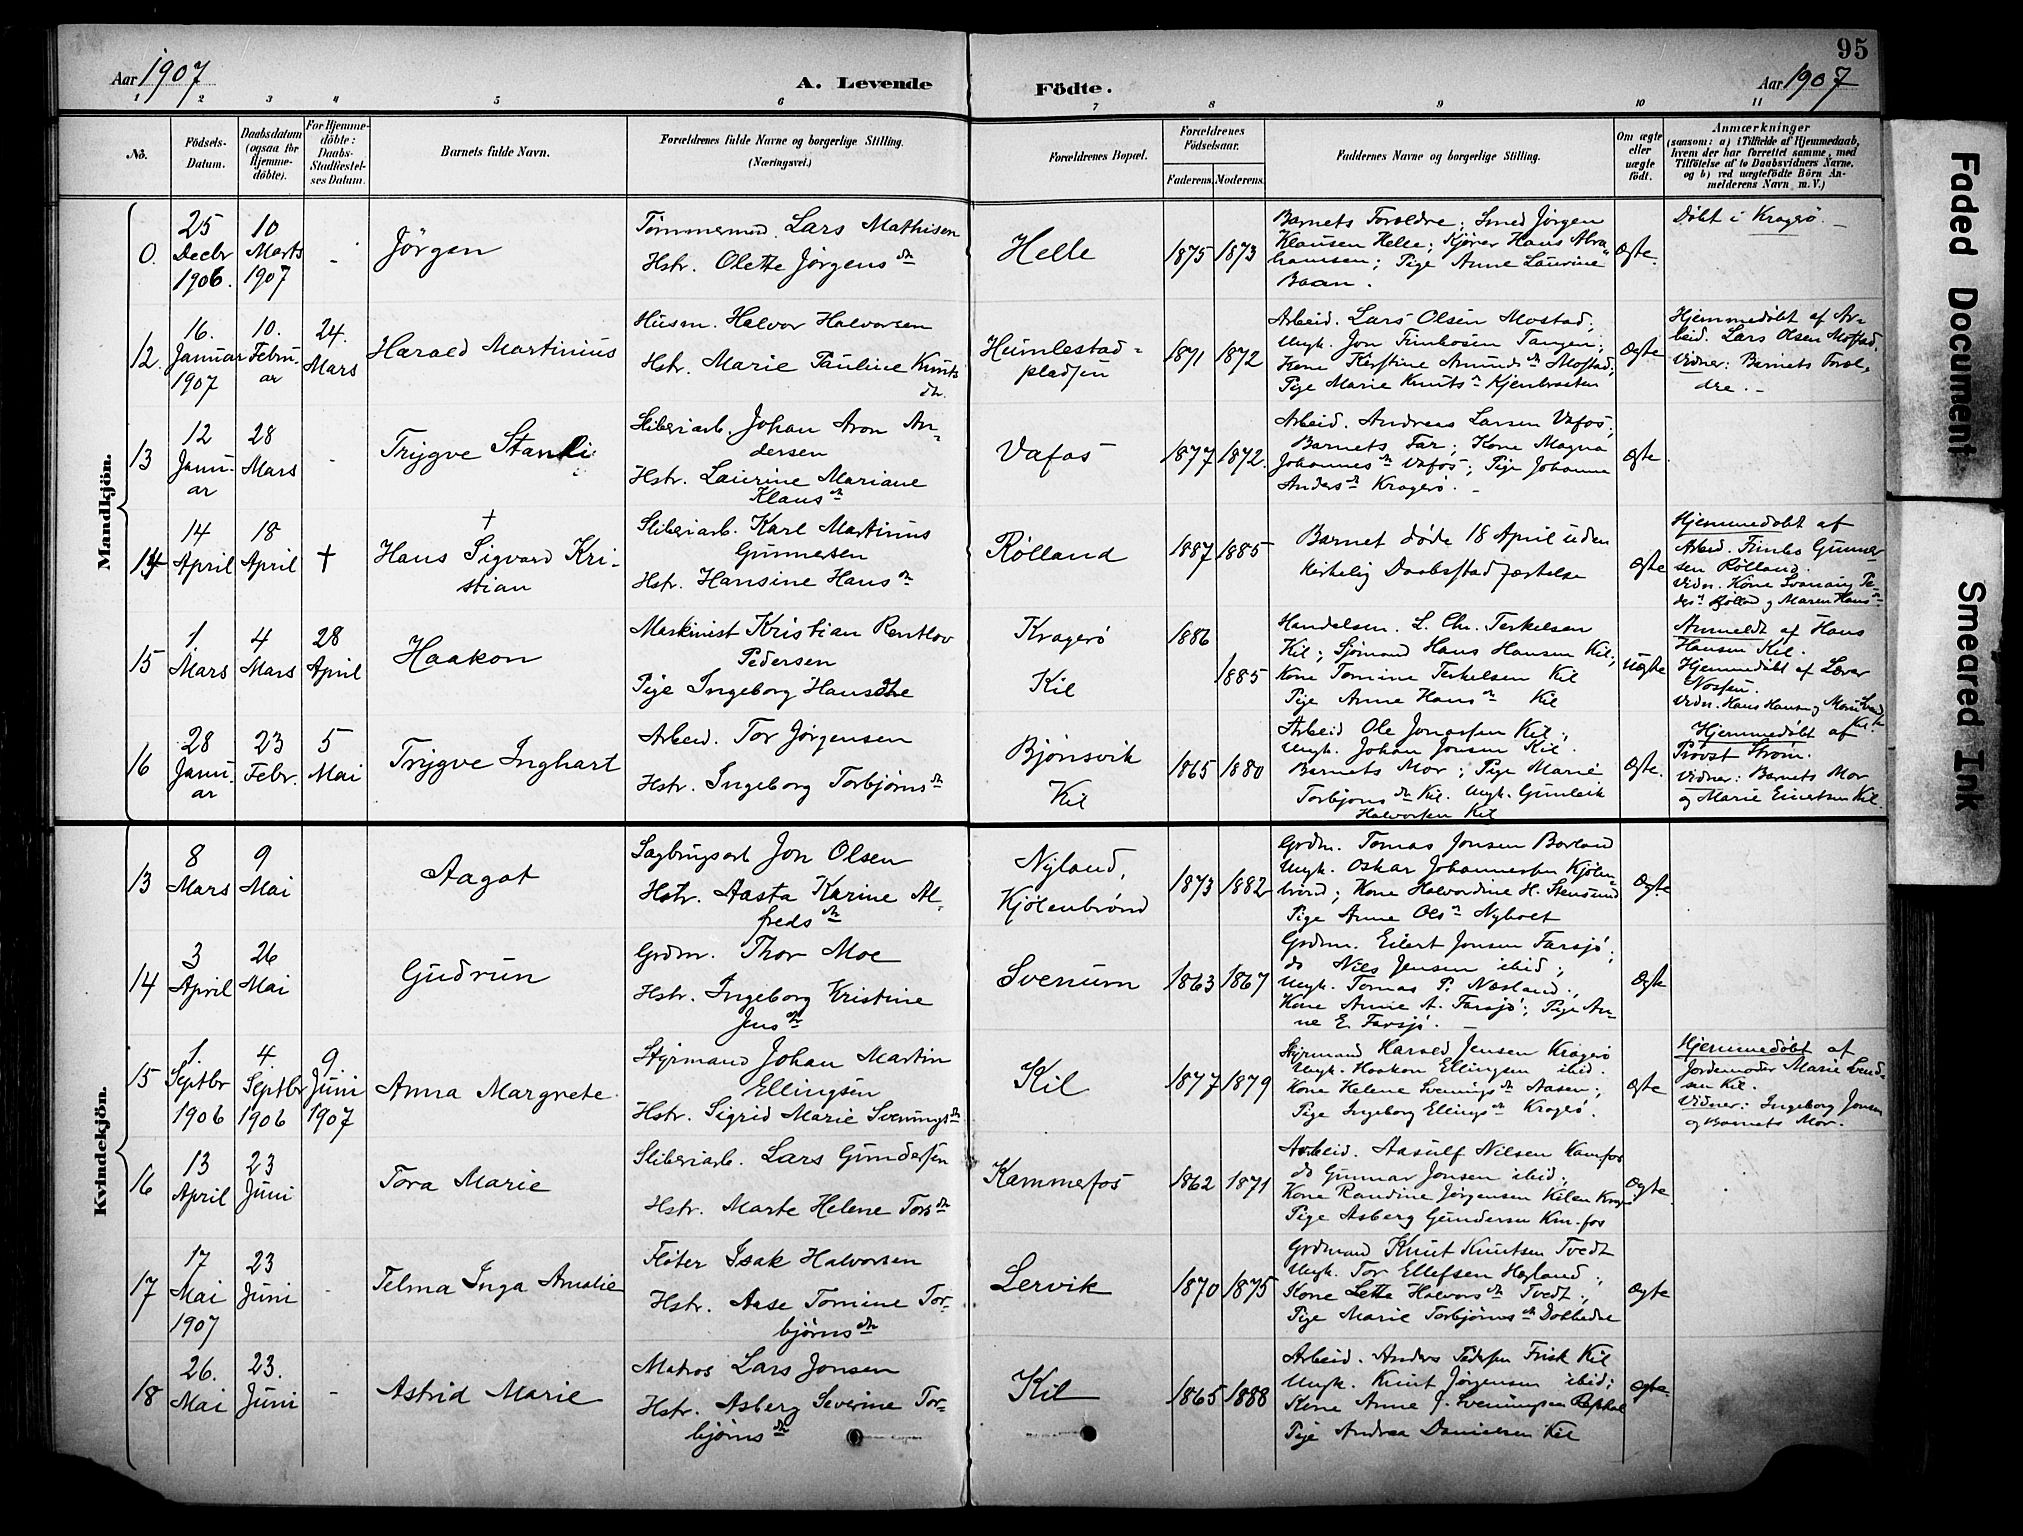 95
Aar 1907
A. Levende
Födte.
Aar 1907
1 2 3 4 5 6 7 8 9 10 11
No.
Födsels-Datum.
Daabsdatum (ogsaa for Hjemmedöbte).
For Hjemmedöbte: Daabs-Stadfæstelses Datum.
Barnets fulde Navn.
Forældrenes fulde Navne og borgerlige Stilling.
(Næringsvei.)
Forældrenes Bopæl.
Forældrenes Födselsaar.
Faderens. Moderens.
Faddernes Navne og borgerlige Stilling.
Om ægte eller uægte födt.
Anmærkninger
(saasom: a) i Tilfælde af Hjemmedaab, hvem der har forrettet samme, med Tilföielse af to Daabsvidners Navne, og b) ved uægtefödte Börn Anmelderens Navn m. V.)
Mandkjön.
0. 25 Decbr 1906. 10 Marts 1907 -
Jörgen
Tømmermd. Lars Mathisen
Hstr. Olette Jörgensdr
Helle
1875 1873
Barnets Forældre; Smed Jörgen
Klausen Helle; Kjører Hans Abra
hamsen; Pige Anne Laurine
Baan.
Ægte.
Døbt i Kragerø.
12. 16. Januar 1907 10. Februar 24. Mars
Harald Martinius
Husm. Halvor Halvorsen
Hstr. Marie Pauline Knuts
dr.
Humlestad-
pladsen
1871 1872
Arbeid. Lars Olsen Mostad;
Ungk. Jon Finbosen Tangen;
Kone Kirstine Amundsdr Mostad;
Pige Marie Knutsdr Kjenbraten
Ægte
Hjemmedøbt af Ar-
beid. Lars Olsen Mostad,
Vidner: Barnets Foræl-
dre. -
13 12 Januar 28 Mars -
Trygve Stanli
Sliberiarb. Johan Aron An-
dersen
Hstr. Laurine Mariane
Klausdr
Vafos
1877 1872.
Arbeid. Andreas Larsen Vafos;
Barnets Far; Kone Magna
Johannesdr Vafos; Pige Johanne
Andersdr Kragerø. -
Ægte
14 14 April 18 April †
†
Hans Sigvard Kri-
stian
Sliberiarb. Karl Martinus
Gunnesen
Hstr. Hansine Hansdr
Rølland
1887 1885
Barnet døde 18 April uden
kirkelig Daabsstadfæstelse
Ægte
Hjemmedøbt af
Arbeid. Finbo Gunner
sen Rølland.
15 1. Mars 4 Mars 28 April
Haakon
Maskinist Kristian Rentlov
Pedersen
Pige Ingeborg Hansdtr
Kragerø
Kil
1886
1885
Handelsm. L. Chr. Terkelsen
Kil; Sjömand Hans Hansen Kil;
Kone Tomine Terkelsen Kil
Pige Anne Hansdr Kil
Uægte
Anmeldt af Hans
Hansen Kil.
Hjemmedøbt af Lærer
Nossen.
16 28 Januar 23 Febr. 5 Mai
Trygve Inghart
Arbeid. Tor Jörgensen
Hstr. Ingeborg Torbjörnsdr
Bjönsvik
Kil
1865 1880
Arbeid Ole Jonassen Kil;
Ungk. Johan Jonsen Kil.
Barnets Mor; Pige Marie
Torbjörnsdr Kil. Ungk. Gunleik
Halvorsen Kil
Ægte.
Hjemmedøbt af
Provst Strøm.
Vidner: Barnets Mor
og Marie Einertsen Kil.
Kvindekjön.
13 8 Mars 9 Mai
Aagot
Sagbrugsarb Jon Olsen
Hstr. Aasta Karine Al-
fredsdr
Nyland,
Kjölenbrönd
1873 1882
Grdm. Tomas Jonsen Borland
Ungk. Oskar Johannesen Kjölen-
brönd; Kone Halvordine H. Stensund
Pige Anne Olsdr Nyholt
Ægte
14 3 April 26 Mai
Gudrun
Grdm. Thor Moe
Hstr. Ingeborg Kristine
Jensdr
Svenum
1863 1867
Grdm. Eilert Jonsen Farsjö;
do Nils Jensen ibid;
Ungk. Tomas P. Næsland;
Kone Anne A. Farsjö; Pige An-
ne E. Farsjö. -
Ægte
15 1. Septbr 1906 4 Septbr 1906 9 Juni 1907
Anna Margrete
Styrmand Johan Martin
Ellingsen
Hstr. Sigrid Marie Sveningsdr
Kil
1877 1879
Styrmand Harald Jensen Kragerö
Ungk. Haakon Ellingsen ibid.
Kone Helene Sveningsdr Aasen;
Pige Ingeborg Ellingsdr Kragerö.
Ægte
Hjemmedøbt af
Jordemoder Marie Svend-
sen Kil.
Vidner: Ingeborg Jonsen
og Barnets Mor.
16 13 April 23 Juni
Tora Marie
Sliberiarb. Lars Gundersen
Hstr. Marte Helene Torsdr
Kammerfos
1862 1871
Arbeid. Aasulf Nilsen Kamfos
do Gunnar Jonsen ibid;
Kone Randine Jörgensen Kilen
Pige Asberg Gundersen Km.fos
Ægte.
17 17 Mai 1907 23 Juni -
Telma Inga Amalie
Fløter Isak Halvorsen
Hstr. Aase Tomine Tor-
björnsdr
Lervik
1870 1875
Grdmand Knut Knutsen Tvedt
Ungk. Tor Ellefsen Høgland;
Kone Lette Halvorsdr Tvedt;
Pige Marie Torbjörnsdr
Ægte
18 26. Mai 23. Juni -
Astrid Marie
Matros Lars Jonsen
Hstr. Asberg Severine Tor-
björnsdr
Kil
1865 1888
Arbeid. Anders Pedersen Frisk Kil
Ungk. Knut Jørgensen ibid;
Kone Anne J. Sveningsen
Pige Andrea Danielsen Kil
Ægte
Faded Document
Smeared Ink